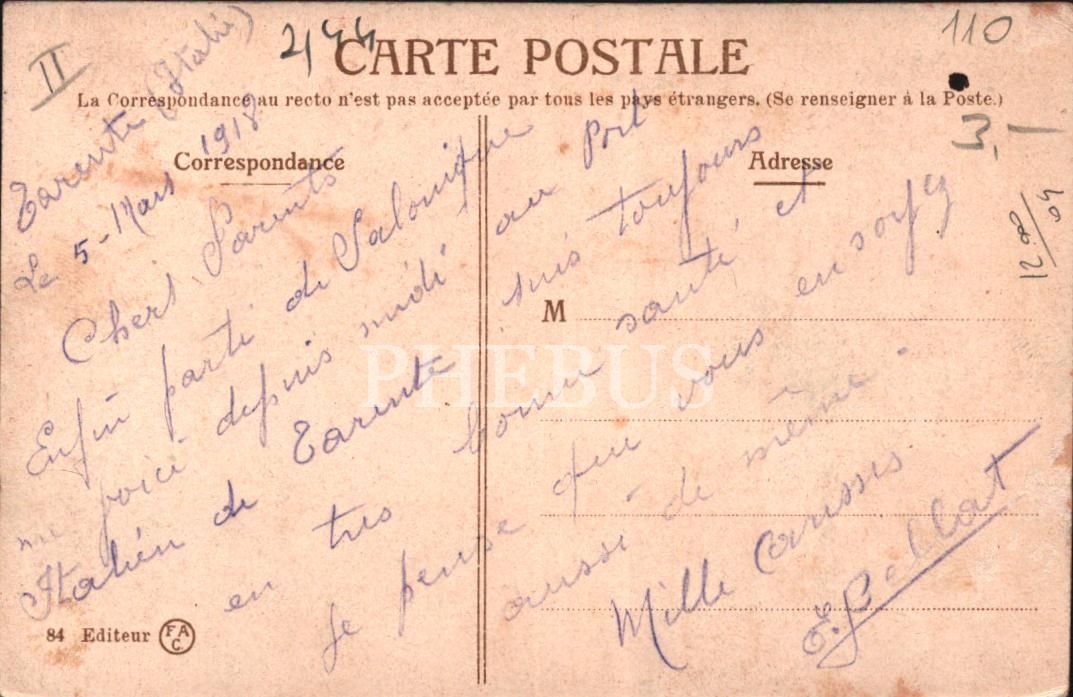 II
2144
110
CARTE POSTALE
La Correspondance au recto n'est pas acceptée par tous les pays étrangers. (Se renseigner à la Poste.)
3,-
Correspondance
Adresse
M
Tarente (Italie)
Le 5 - Mars 1918
Chers Parents
Enfin parti de Salonique
me voici depuis midi au Port
Italien de Tarente suis toujours
en tres bonne santé et
je pense que vous en soyez
aussi de même.
Mille Caresses
PHEBUS
84 Editeur FAC.